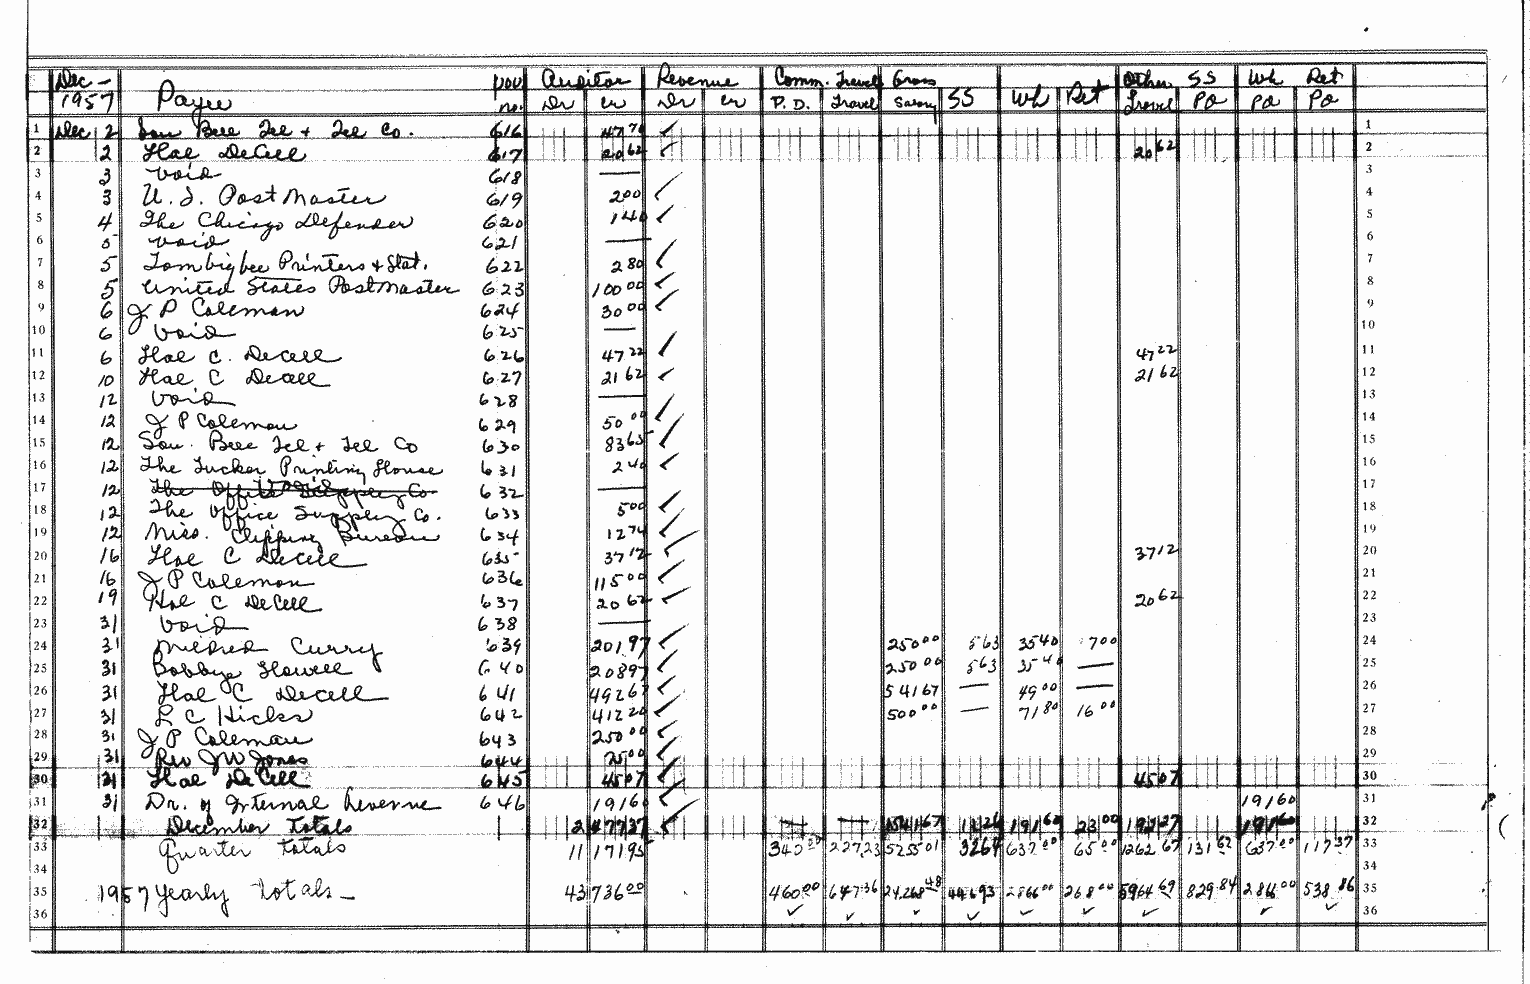 Dec - 1957 Payee Vou no. Auditor Dr Cr Revenue Dr Cr Comm. P.D. Travel Travel Gross Salary SS Wh Ret Other Travel SS Pd Wh Pd Ret Pd
1 Dec 2 Sou Bell Tel + Tel Co. 616 47 70 ✓ 1
2 2 Hal DeCell 617 20 62 ✓ 20 62 2
3 3 Void 618 — 3
4 3 U. S. PostMaster 619 2 00 ✓ 4
5 4 The Chicago Defender 620 1 40 ✓ 5
6 5 Void 621 — 6
7 5 Tombigbee Printers + Stat. 622 2 80 ✓ 7
8 5 United States PostMaster 623 100 00 ✓ 8
9 6 J P Coleman 624 30 00 ✓ 9
10 6 Void 625 — 10
11 6 Hal C. DeCell 626 47 22 ✓ 47 22 11
12 10 Hal C DeCell 627 21 62 ✓ 21 62 12
13 12 Void 628 — 13
14 12 J P Coleman 629 50 00 ✓ 14
15 12 Sou. Bell Tel + Tel Co 630 83 65 ✓ 15
16 12 The Tucker Printing House 631 2 40 ✓ 16
17 12 The Office Supply Co. 632 — 17
18 12 The Office Supply Co. 633 5 00 ✓ 18
19 12 Miss. Clipping Bureau 634 12 74 ✓ 19
20 16 Hal C DeCell 635 37 12 ✓ 37 12 20
21 16 J P Coleman 636 115 00 ✓ 21
22 19 Hal C DeCell 637 20 62 ✓ 20 62 22
23 31 Void 638 — 23
24 31 Mildred Curry 639 201 97 ✓ 250 00 5 63 35 40 7 00 24
25 31 Bobbye Howell 640 208 97 ✓ 250 00 5 63 35 40 — 25
26 31 Hal C DeCell 641 492 67 ✓ 541 67 — 49 00 — 26
27 31 L C Hicks 642 412 20 ✓ 500 00 — 71 80 16 00 27
28 31 J P Coleman 643 250 00 ✓ 28
29 31 Rev J W Jones 644 25 00 ✓ 29
30 31 Hal DeCell 645 45 07 ✓ 45 07 30
31 31 Dr. of Internal Revenue 646 191 60 ✓ 191 60 31
32 December Totals 2 477 37 ✓ — — 1541 67 11 26 191 60 23 00 192 27 191 60 32
33 Quarter Totals 11 171 95 340 00 227 23 5255 01 32 64 637 00 65 00 1262 67 131 62 637 00 117 37 33
34 34
35 1957 Yearly Totals — 43 736 00 460 00 647 36 24,268 48 446 93 2866 00 268 00 5964 69 829 84 2866 00 538 86 35
36 ✓ ✓ ✓ ✓ ✓ ✓ ✓ ✓ ✓ 36